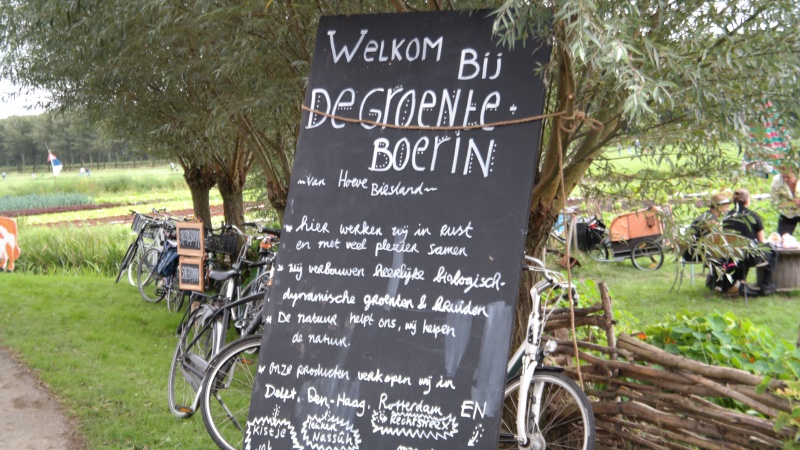 Welkom Bij
De Groente-
Boerin
~van Hoeve Biesland~
* hier werken wij in rust
en met veel plezier samen
* wij verbouwen heerlijke biologisch-
dynamische groenten & kruiden
* De natuur helpt ons, wij helpen
de natuur.
* onze producten verkopen wij in
Delft, Den-Haag, Rotterdam EN
Rechtstreex
Kistje
Leuken
Nassûh